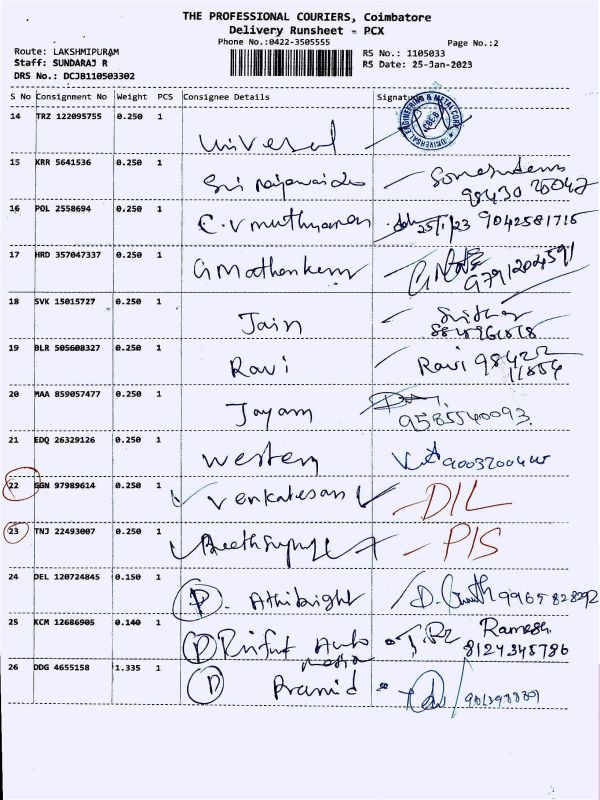 THE PROFESSIONAL COURIERS, Coimbatore
Delivery Runsheet - PCX
Phone No.:0422-3505555 Page No.:2
Route: LAKSHMIPURAM RS No.: 1105033
Staff: SUNDARAJ R RS Date: 25-Jan-2023
DRS No.: DCJB110503302
S No Consignment No Weight PCS Consignee Details Signature
14 TRZ 122095755 0.250 1 Universal
15 KRR 5641536 0.250 1 Sri
16 POL 2558694 0.250 1 C.V 25/1/23 9042581716
17 HRD 357047337 0.250 1 9791204591
18 SVK 15015727 0.250 1 Jain
19 BLR 505608327 0.250 1 Ravi Ravi 98422
11854
20 MAA 859057477 0.250 1 Jayam
9585540093
21 EDQ 26329126 0.250 1 Western
22 GGN 97989614 0.250 1 Venkatesan DIL
23 TNJ 22493007 0.250 1 PIS
24 DEL 120724845 0.150 1 P. 9965828292
25 KCM 12686905 0.140 1 P Auto Ramesh
8124345786
26 DDG 4655158 1.335 1 P Pramid